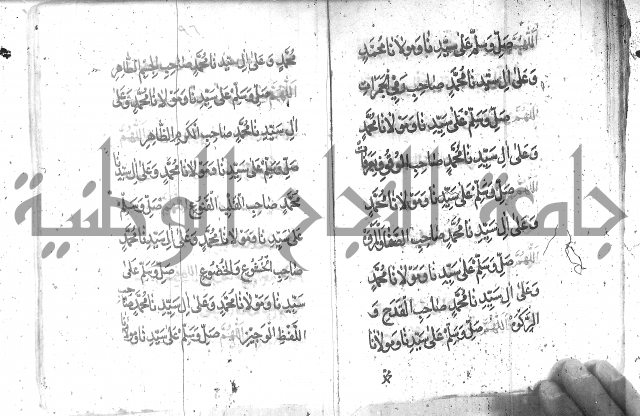 اللهم صل وسلم على سيدنا ومولانا محمد
وعلى ال سيدنا محمد صاحب
اللهم صل وسلم على سيدنا ومولانا محمد
وعلى ال سيدنا محمد صاحب
اللهم صل وسلم على سيدنا ومولانا محمد
وعلى ال سيدنا محمد صاحب
اللهم صل وسلم على سيدنا ومولانا محمد
وعلى ال سيدنا محمد صاحب و
اللهم صل وسلم على سيدنا ومولانا
محمد وعلى ال سيدنا محمد صاحب الظاهر
اللهم صل وسلم على سيدنا ومولانا محمد وعلى
ال سيدنا محمد صاحب الكرم الظاهر اللهم
صل وسلم على سيدنا ومولانا محمد وعلى ال سيدنا
محمد صاحب القلب اللهم صل وسلم
على سيدنا ومولانا محمد وعلى ال سيدنا محمد
صاحب الخشوع والخضوع اللهم صل وسلم على
سيدنا ومولانا محمد وعلى ال سيدنا محمد صاحب
اللفظ الوجيز اللهم صل وسلم على سيدنا ومولانا
جامعة النجاح الوطنية